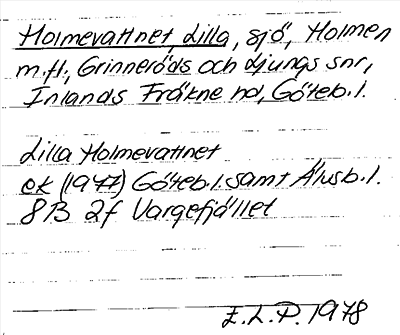 Holmevattnet, Lilla, sjö, Holmen
m.fl., Grinneröds och Ljungs snr,
Inlands Fräkne hd, Göteb.l.
Lilla Holmevattnet
ek (1977) Göteb.l. samt Älvsb.l.
8B 2f Vargefjället
E.L.P. 1978